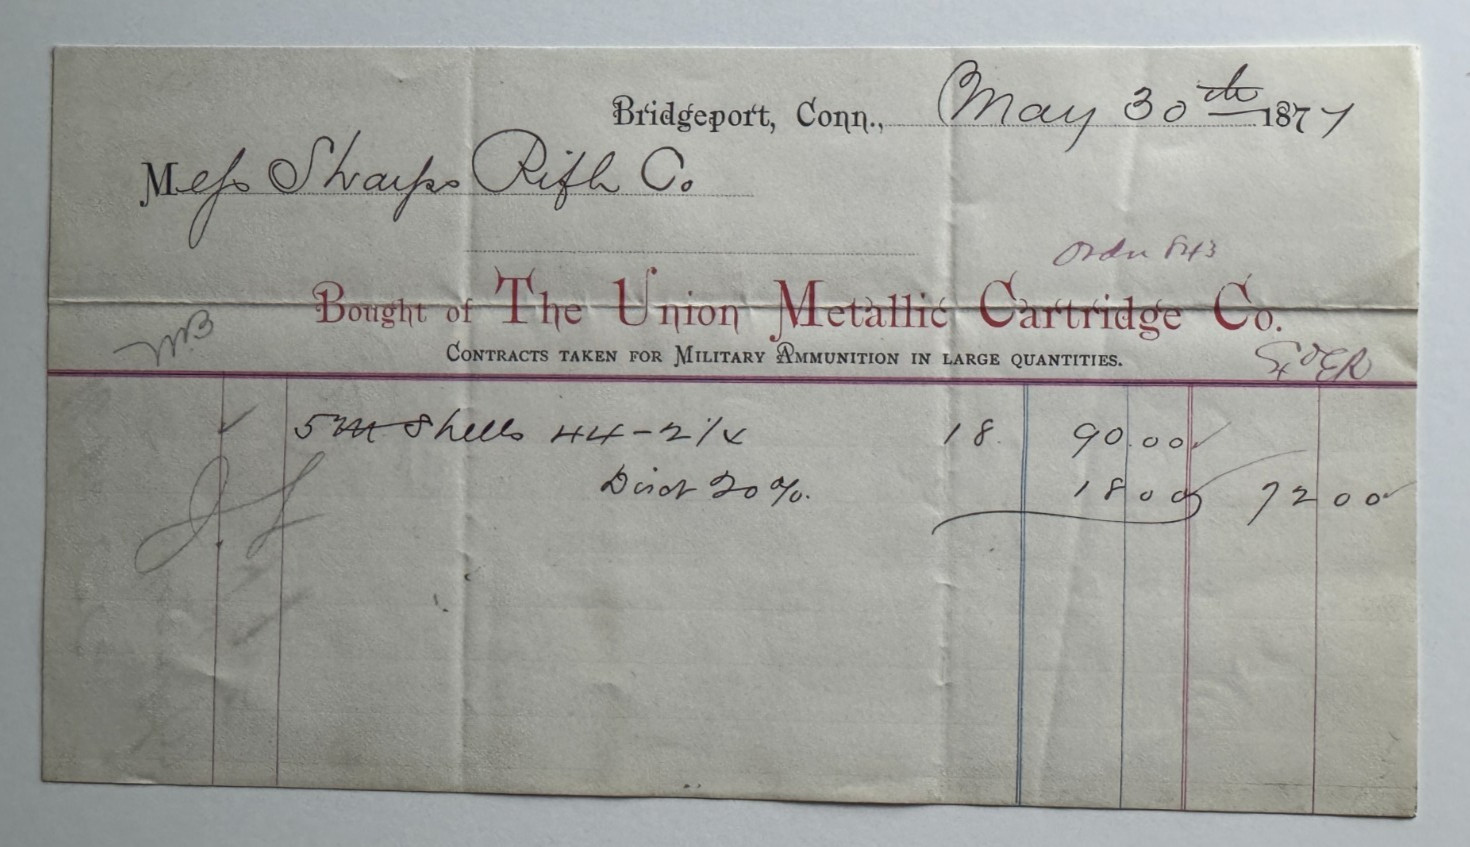 Bridgeport, Conn., May 30th 1877
Mess Sharps Rifle Co.
Order 843
Bought of The Union Metallic Cartridge Co.
Contracts taken for Military Ammunition in large quantities.
5M Shells 44-2 1/4 18. 90.00
Disct 20%. 18 00 72 00